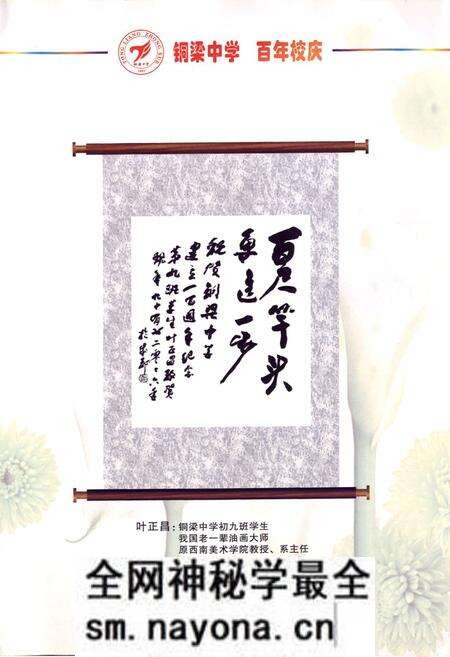 TONG LIANG ZHONG XUE
铜梁中学 百年校庆
百尺竿头
更进一步
祝贺铜梁中学
建立一百週年纪念
第九班学生叶正昌敬贺
叶正昌：铜梁中学初九班学生
我国老一辈油画大师
原西南美术学院教授、系主任
全网神秘学最全
sm.nayona.cn